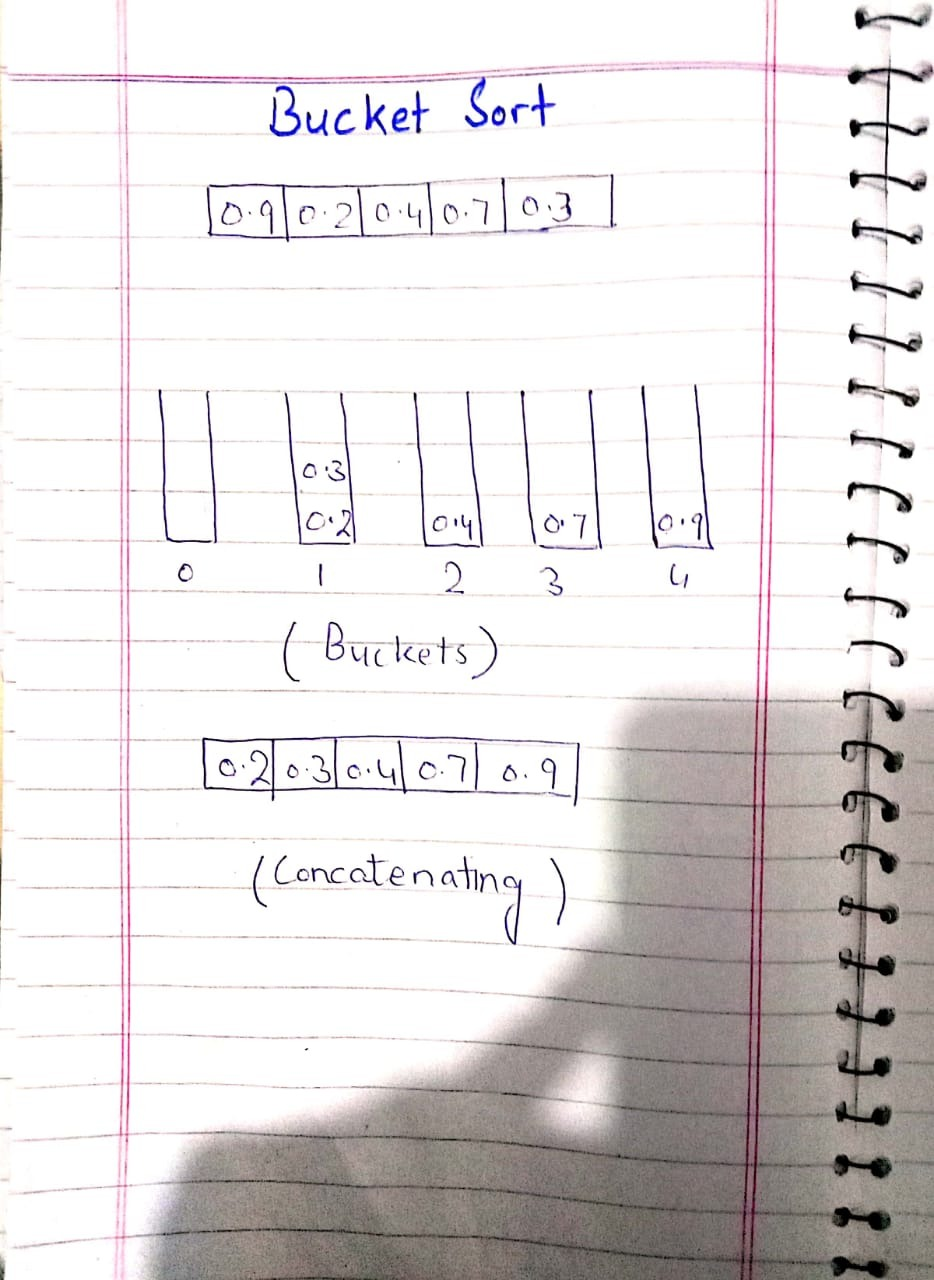 Bucket Sort
0.9 0.2 0.4 0.7 0.3
0.3
0.2 0.4 0.7 0.9
0 1 2 3 4
(Buckets)
0.2 0.3 0.4 0.7 0.9
(Concatenating)